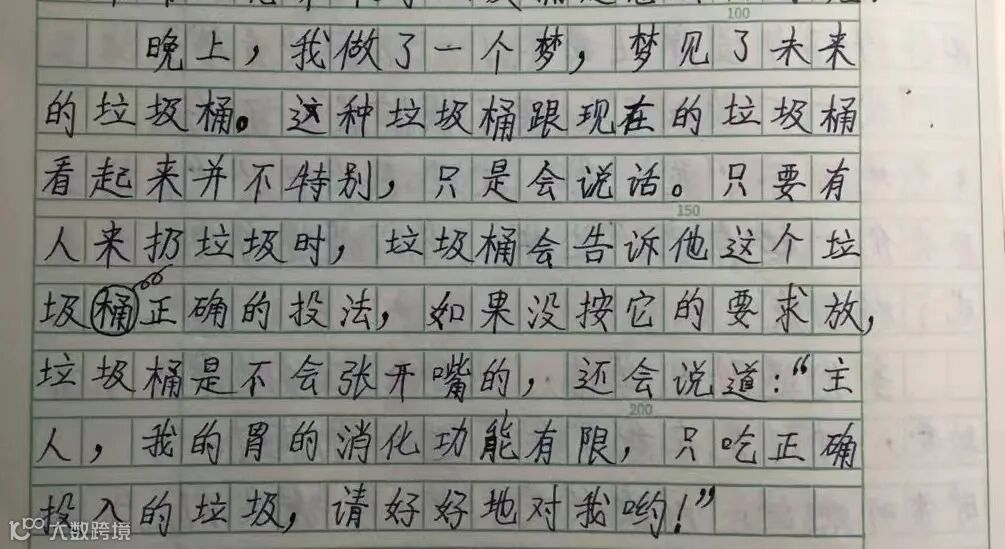 100
晚上，我做了一个梦，梦见了未来
的垃圾桶。这种垃圾桶跟现在的垃圾桶
看起来并不特别，只是会说话。只要有
150
人来扔垃圾时，垃圾桶会告诉他这个垃
圾桶正确的投法，如果没按它的要求放，
垃圾桶是不会张开嘴的，还会说道：“主
200
人，我的胃的消化功能有限，只吃正确
投入的垃圾，请好好地对我哟！”
大数跨境